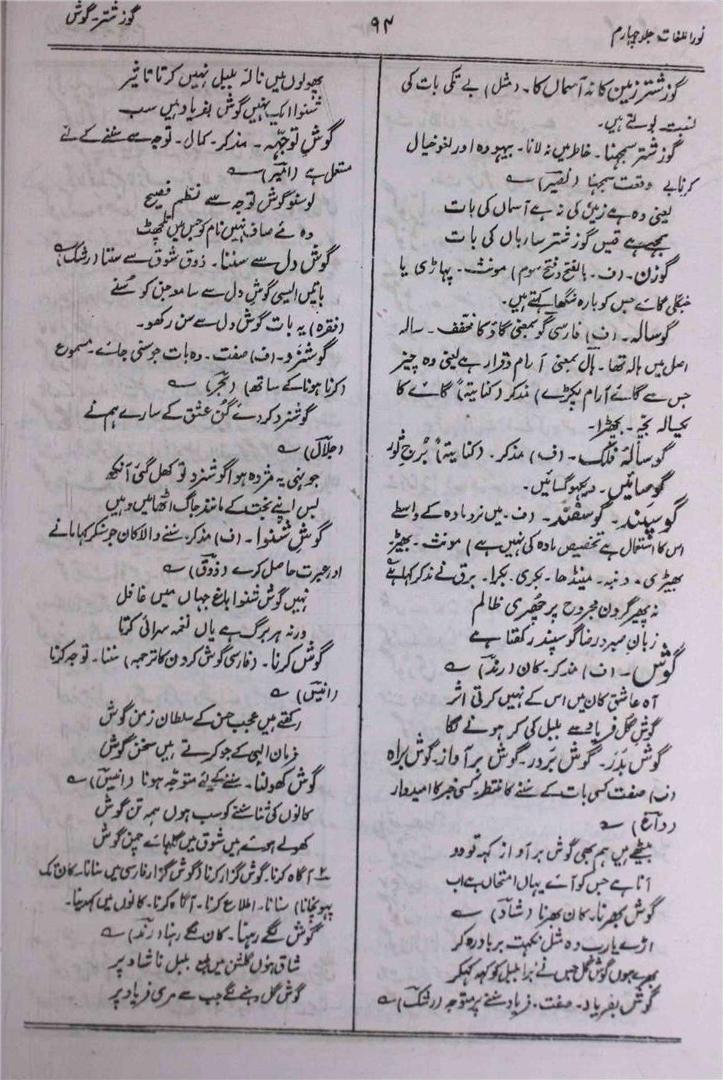 نور اللغات جلد چہارم
۹۴
گوز شتر۔گوش
گوز شتر زمین کا نہ آسماں کا۔ (مثل) بے تکی بات کی
نسبت بولتے ہیں۔
گوز شتر سمجھنا۔ خاطر میں نہ لانا۔ بیہودہ اور لغو خیال
کرنا بے وقعت سمجھنا (نصیرؔ) ؎
یعنی وہ ہے زمیں کی نہ ہے آسماں کی بات
سمجھے ہے قیس گوز شتر سارباں کی بات
گوزن۔ (ف۔ بالفتح و فتح سوم) مونث۔ پہاڑی یا
جنگلی گائے جس کو بارہ سنگھا کہتے ہیں۔
گوسالہ۔ (ف) فارسی گو بمعنی گاؤ کا مخفف۔ سالہ
اصل میں ہالہ تھا۔ ہال بمعنی آرام و قرار ہے یعنی وہ چیز
جس سے گائے آرام پکڑے) مذکر (کنایتہً) گائے کا
یکسالہ بچّہ۔ بچھڑا۔
گوسالۂ فلک۔ (ف) مذکر۔ (کنایتہً) برج ثور
گوسائیں۔ دیکھو گسائیں۔
گوسپند۔ گوسفند۔ (ف۔ میں نر و مادہ کے واسطے
اس کا استعمال ہے تخصیص مادہ کی نہیں ہے) مونث۔ بھیڑ
بھیڑی۔ دنبہ۔ مینڈھا۔ بکری۔ بکرا۔ برق نے مذکر کہا ہے ؎
نہ پھیر گردن مجروح پر چھری ظالم
زبان میر و رضا گوسپند رکھتا ہے
گوش۔ (ف) مذکر۔ کان (رندؔ) ؎
آہ عاشق کان میں اس کے نہیں کرتی اثر
گوش گل فریاد سے بلبل کی کر ہونے لگا
گوش بدر۔ گوش بر در۔ گوش بر آواز۔ گوش براہ
(ف) صفت کسی بات کے سننے کا منتظر۔ کسی خبر کا امیدوار
(داغؔ) ؎
بیٹھے ہیں ہم بھی گوش بر آواز کہہ تو دو
آنا ہے جس کو آئے یہاں امتحاں ہے اب
گوش بھرنا۔ کان بھرنا (شادؔ) ؎
اڑے یارب وہ مثل نکہت برباد رہ کر
بھرے ہوں گوش گل جس نے برا بلبل کو کہہ کہہ کر
گوش بفریاد۔ صفت۔ فریاد سننے پر متوجہ (رشکؔ) ؎
پھولوں میں نالۂ بلبل نہیں کرتا تاثیر
شنوا ایک نہیں گوش بفریاد ہیں سب
گوش توجّہہ۔ مذکر۔ کمال۔ توجہ سے سننے کے لئے
مستعمل ہے (انیسؔ) ؎
لو سنو گوش توجہ سے نظم فصیح
وہ مے صاف نہیں نام کو جس میں تلچھٹ
گوش دل سے سننا۔ ذوق شوق سے سننا (رشکؔ) ؎
باتیں ایسی گوش دل سے سامعو جن کو سنے
(فقرہ) یہ بات گوش دل سے سن رکھو۔
گوشزد۔ (ف) صفت۔ وہ بات جو سنی جائے۔ مسموع
(کرنا ہونا کے ساتھ) (بحرؔ) ؎
گوشزد کر دئے گن عشق کے سارے ہم نے
(جلالؔ) ؎
جونہی یہ مژدہ ہوا گوشزد تو کھل گئی آنکھ
بس اپنے بخت کے مانند جاگ اٹھا میں وہیں
گوش شنوا۔ (ف) مذکر۔ سننے والا کان جو سنکر کہا مانے
اور عبرت حاصل کرے (ذوقؔ) ؎
نہیں گوش شنوا باغ جہاں میں غافل
ورنہ ہر برگ ہے یاں نغمہ سرائی کرتا
گوش کرنا۔ (فارسی گوش کردن کا ترجمہ) سننا۔ توجہ کرنا
(انیسؔ) ؎
رکھتے ہیں عجب حسن کے سلطان زمن گوش
قرآن الٰہی کے جو کرتے ہیں سخن گوش
گوش کھولنا۔ سننے کے لئے متوجہ ہونا (انیسؔ) ؎
کانوں کی ثنا سننے کو سب ہوں ہمہ تن گوش
کھولے ہوئے ہیں شوق میں گلہائے چمن گوش
آگاہ کرنا۔ گوش گزار کرنا (گوش گزار فارسی میں سنانا۔ کان تک
پہونچانا) سنانا۔ اطلاع کرنا۔ آگاہ کرنا۔ کانوں میں کہدینا۔
گوش لگے رہنا۔ کان لگے رہنا (رندؔ) ؎
شاق ہوں گلشن میں بلبل ناشاد پر
گوش گل رہنے لگے جب سے مری فریاد پر